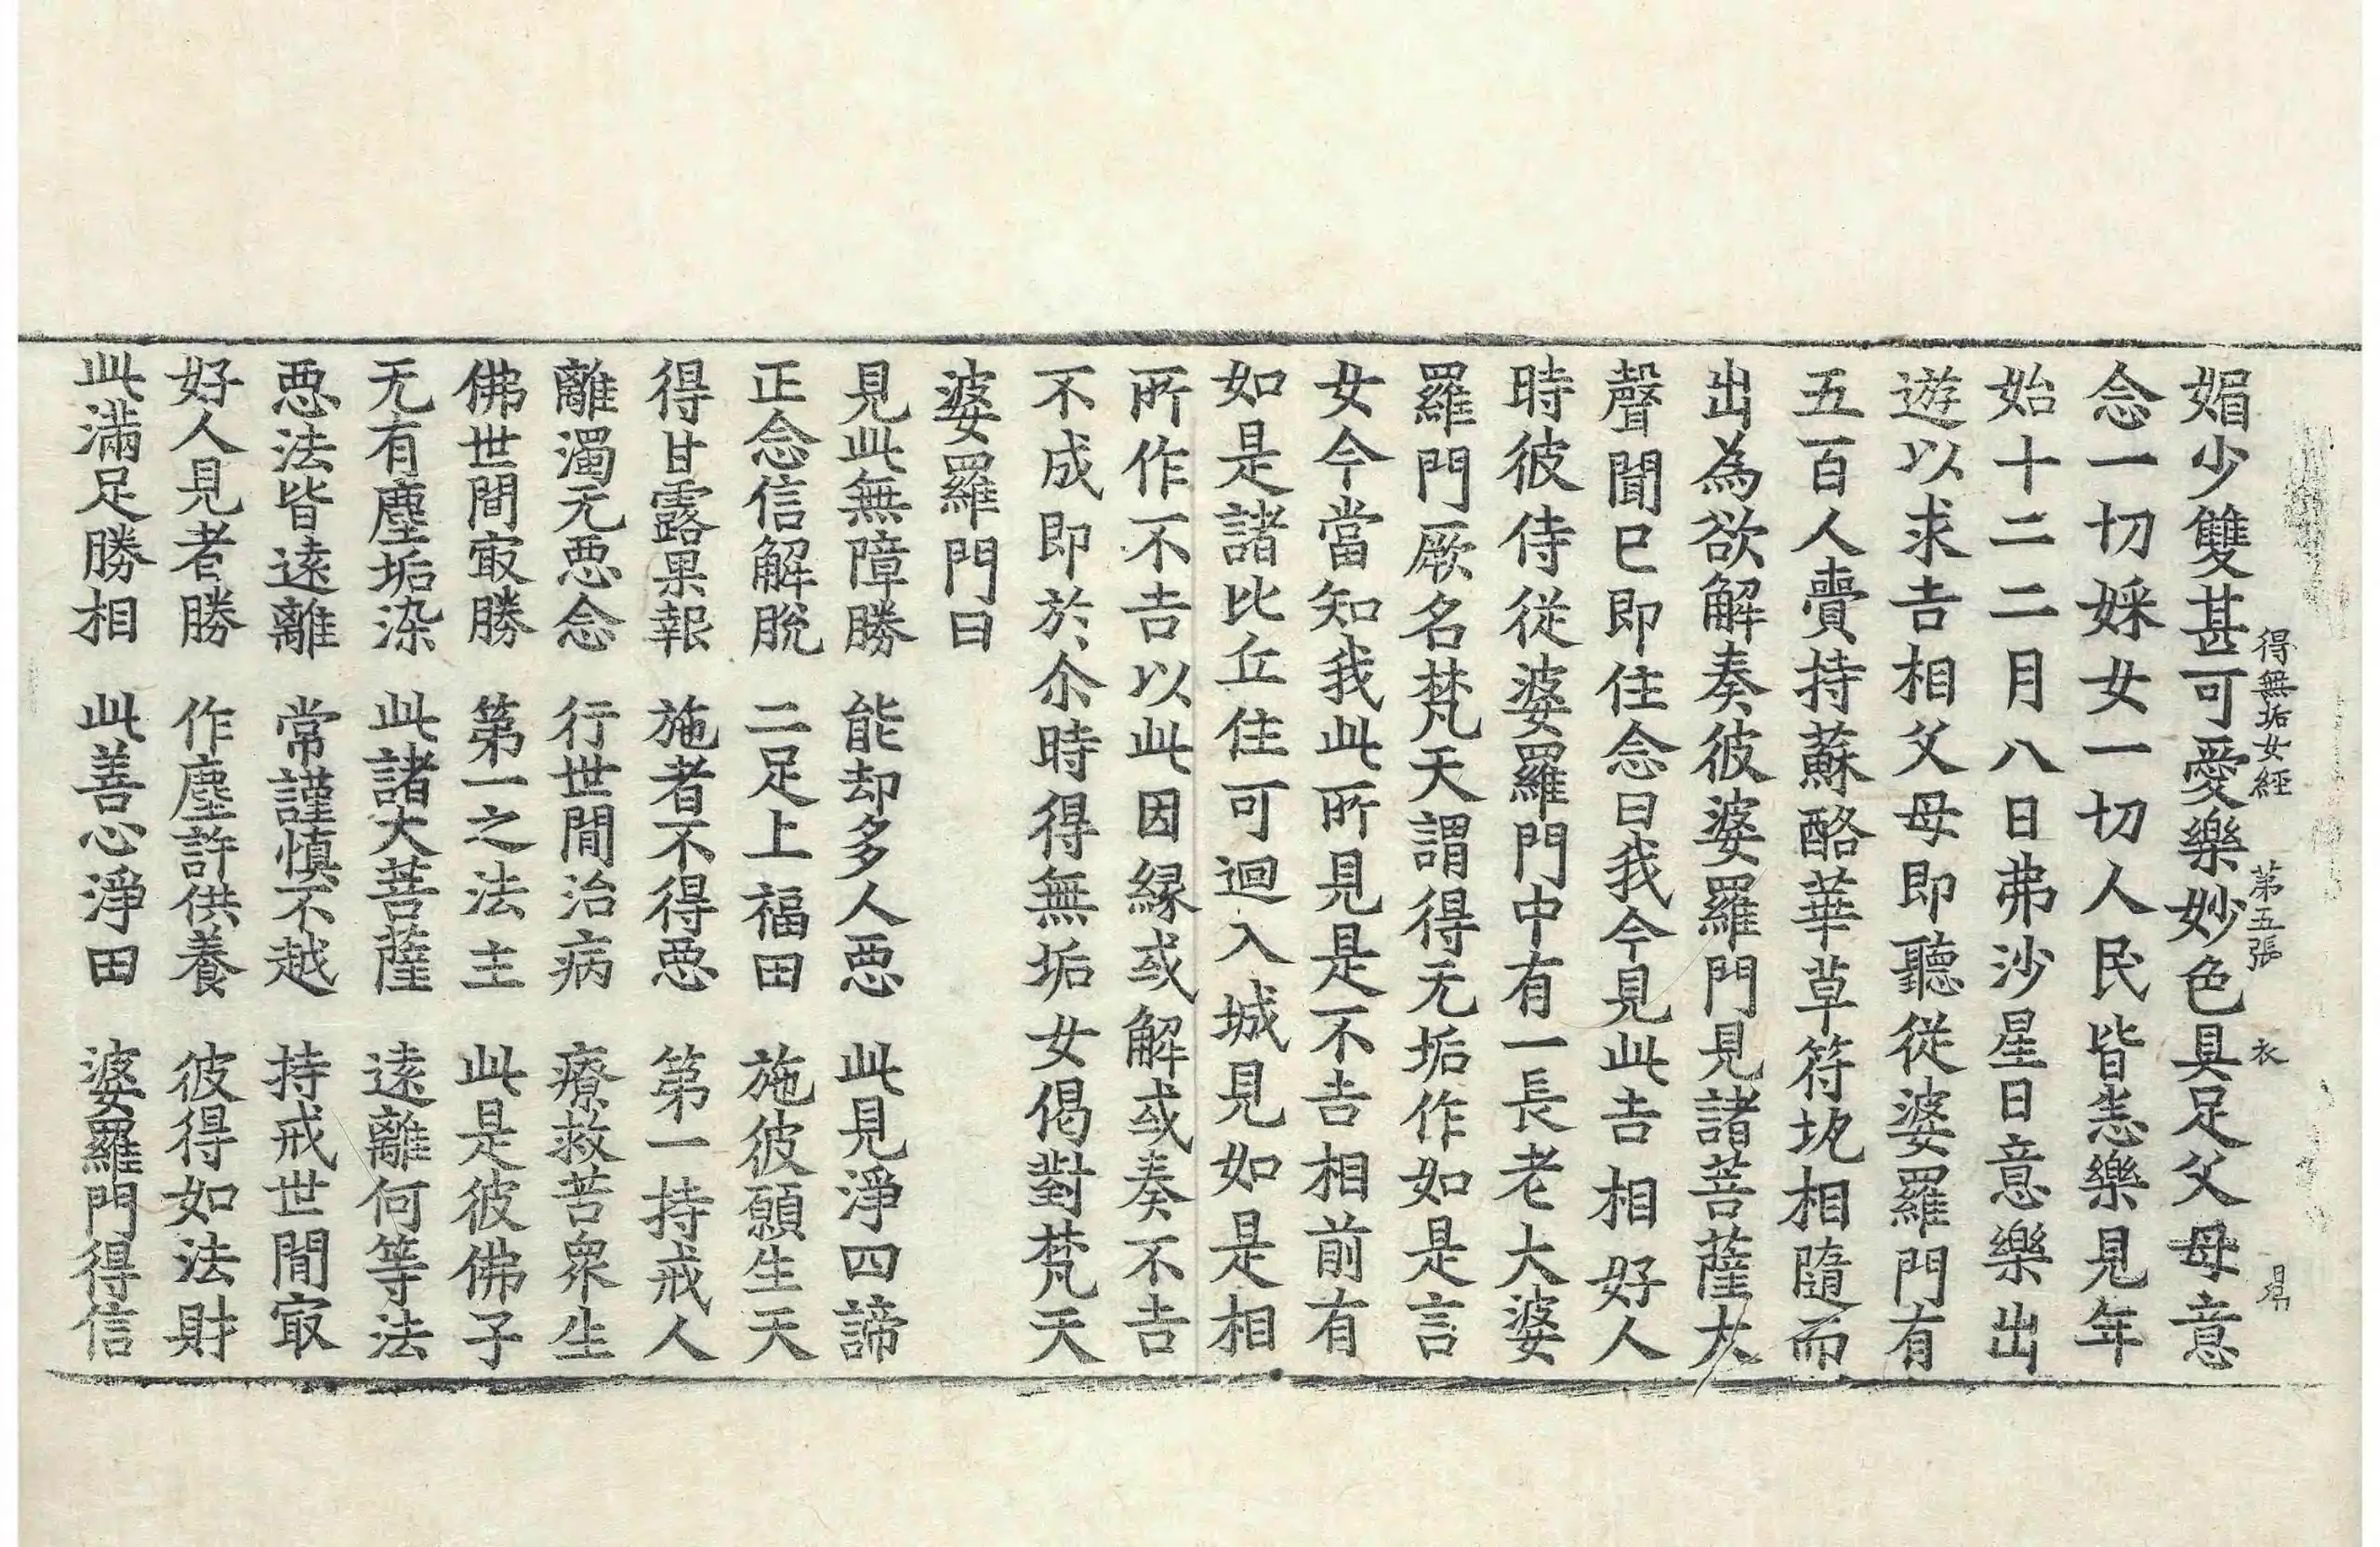 得無垢女經 第五張 衣
媚少雙甚可愛樂妙色具足父母意
念一切婇女一切人民皆悉樂見年
始十二二月八日弗沙星日意樂出
遊以求吉相父母即聽從婆羅門有
五百人賷持蘇酪華草符圠相隨而
出為欲解奏彼婆羅門見諸菩薩大
聲聞已即住念曰我今見此吉相好人
時彼侍從婆羅門中有一長老大婆
羅門厥名梵天謂得无垢作如是言
女今當知我此所見是不吉相前有
如是諸比丘住可迴入城見如是相
所作不吉以此因緣或解或奏不吉
不成即於尒時得無垢女偈對梵天
婆羅門曰
見此無障勝 能却多人惡 此見淨四諦
正念信解脫 二足上福田 施彼願生天
得甘露果報 施者不得惡 第一持戒人
離濁无惡念 行世間治病 療救苦衆生
佛世間㝡勝 第一之法主 此是彼佛子
无有塵垢染 此諸大菩薩 遠離何等法
惡法皆遠離 常謹慎不越 持戒世間㝡
好人見者勝 作塵許供養 彼得如法財
此滿足勝相 此善心淨田 婆羅門得信